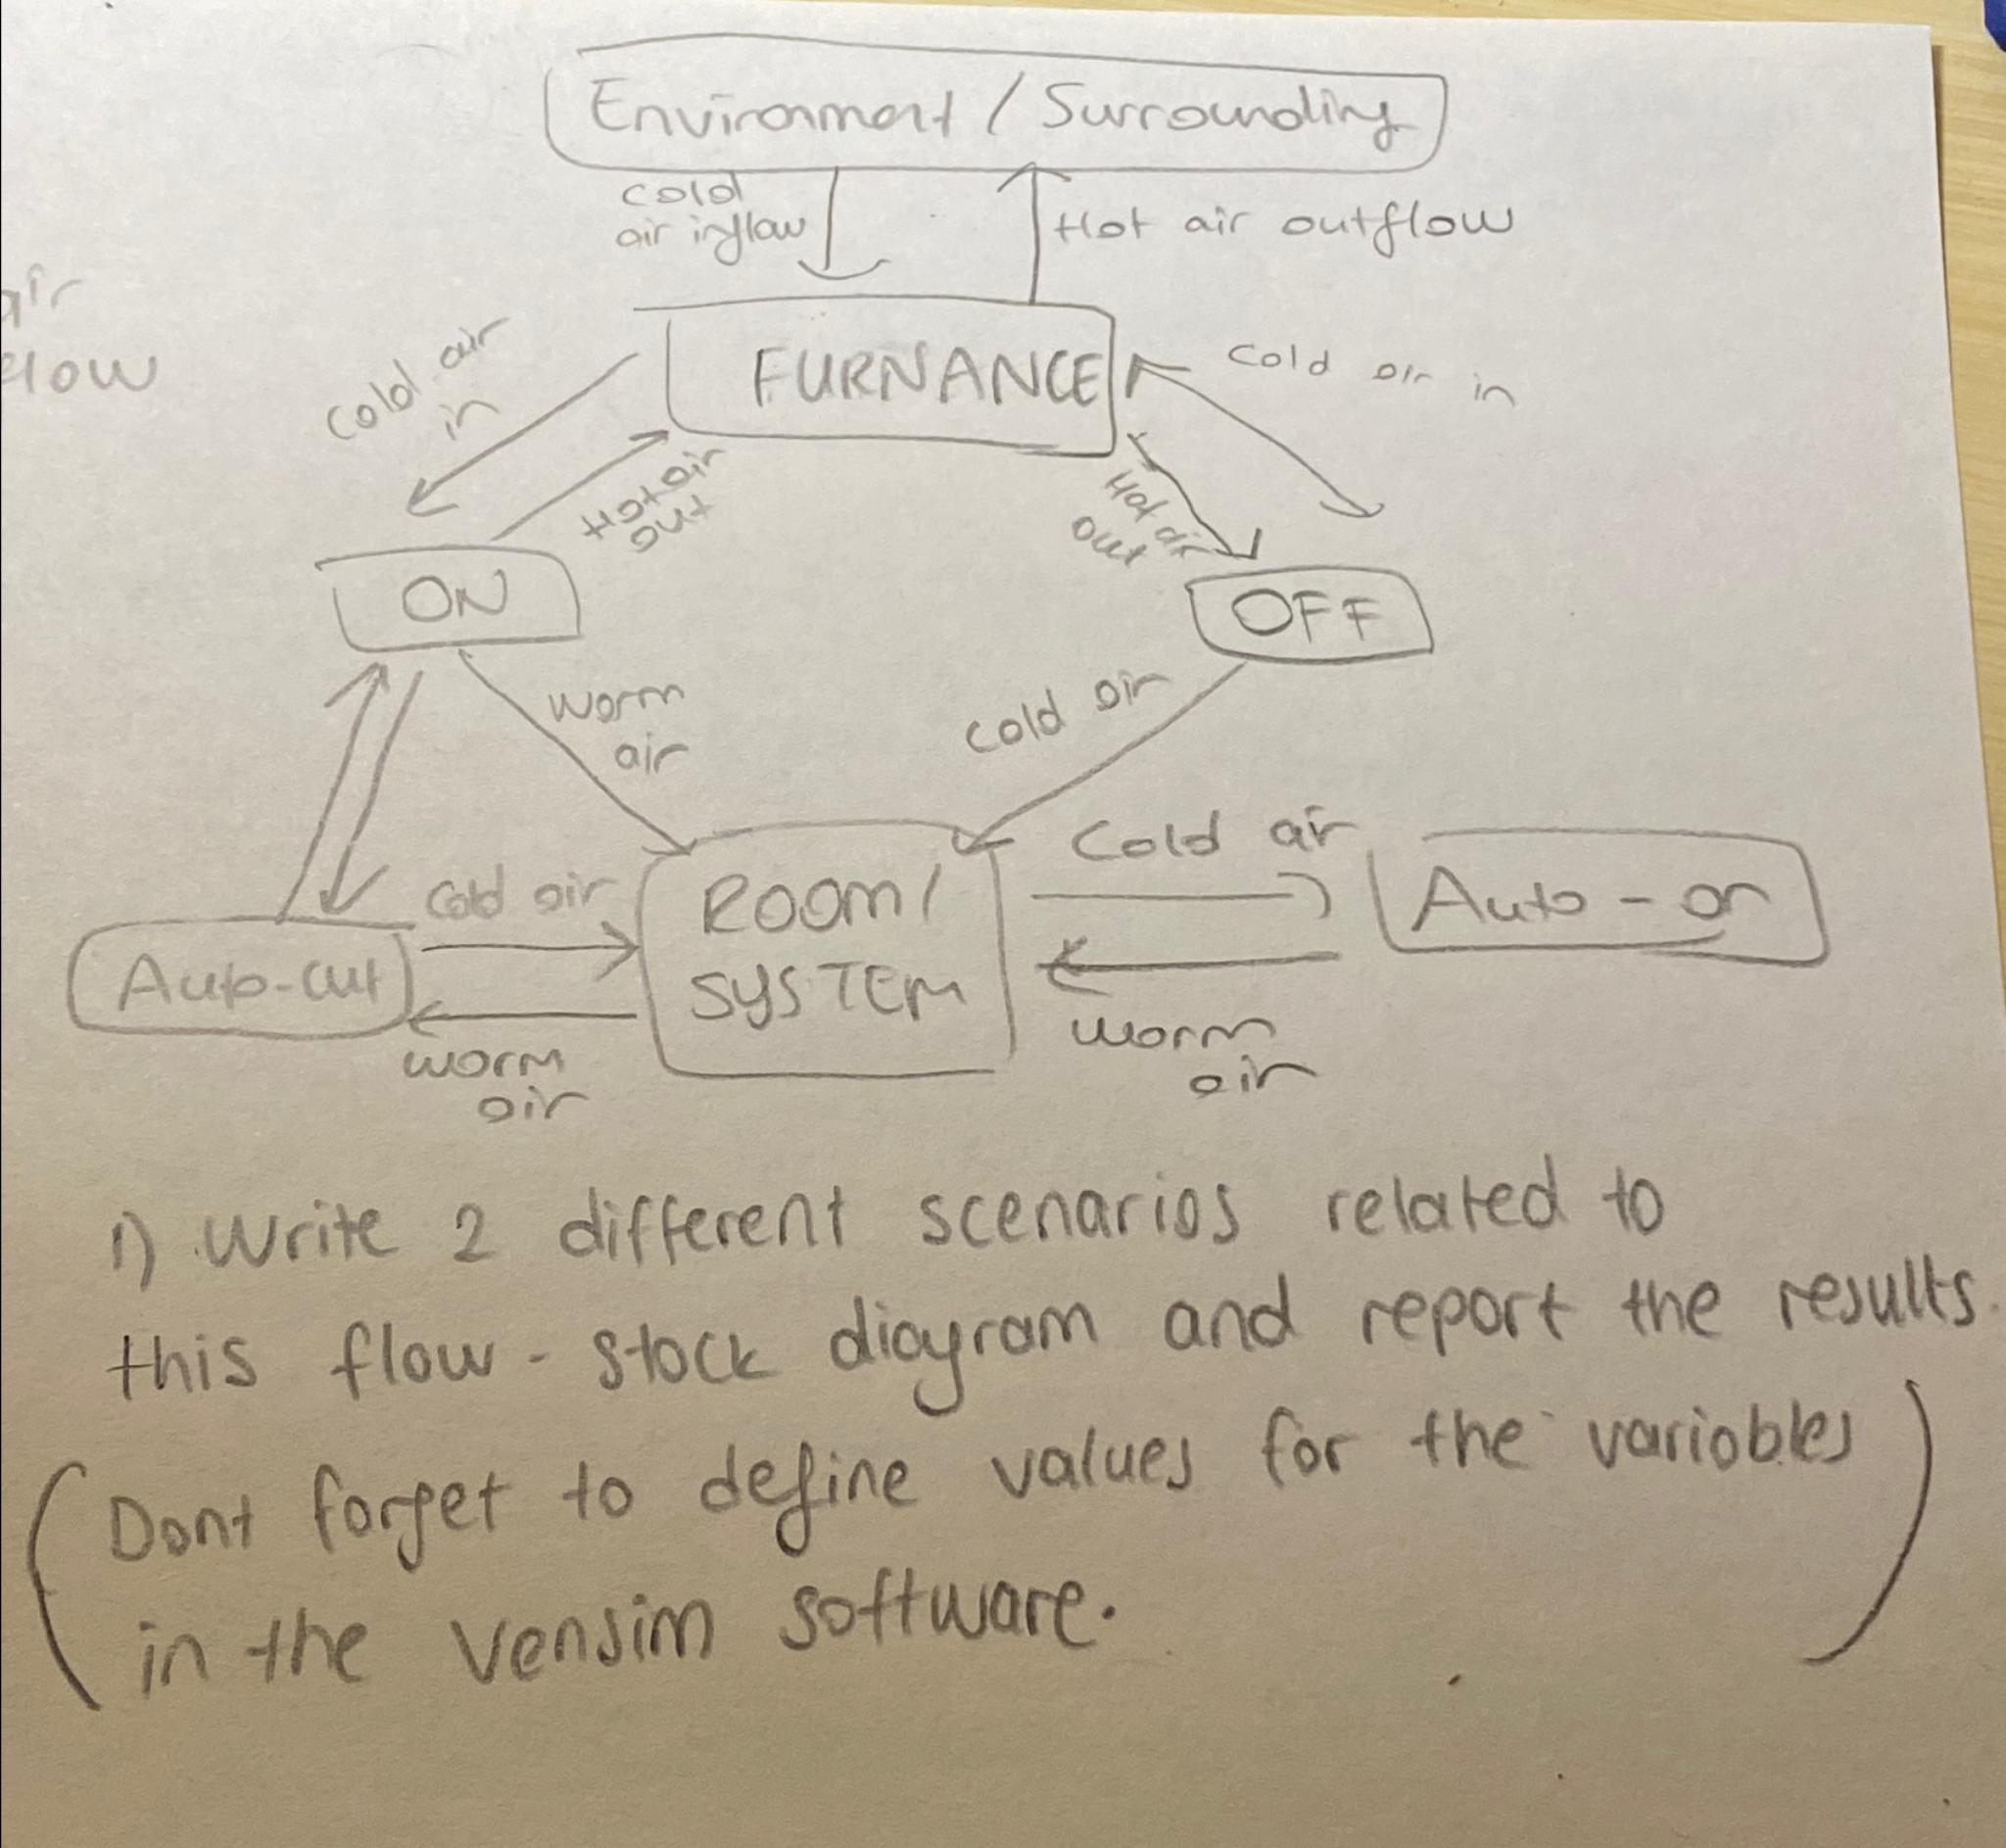 Environment / Surrounding
cold
air inflow
Hot air outflow
air
flow
FURNANCE
cold air
in
Hot air
out
Cold air in
Hot air
out
ON
OFF
warm
air
cold air
Cold air
ROOM/
SYSTEM
Cold air
Auto-on
Auto-cut
warm
air
warm
air
1) Write 2 different scenarios related to
this flow - stock diagram and report the results.
(Dont forget to define values for the variables
in the vensim software.)